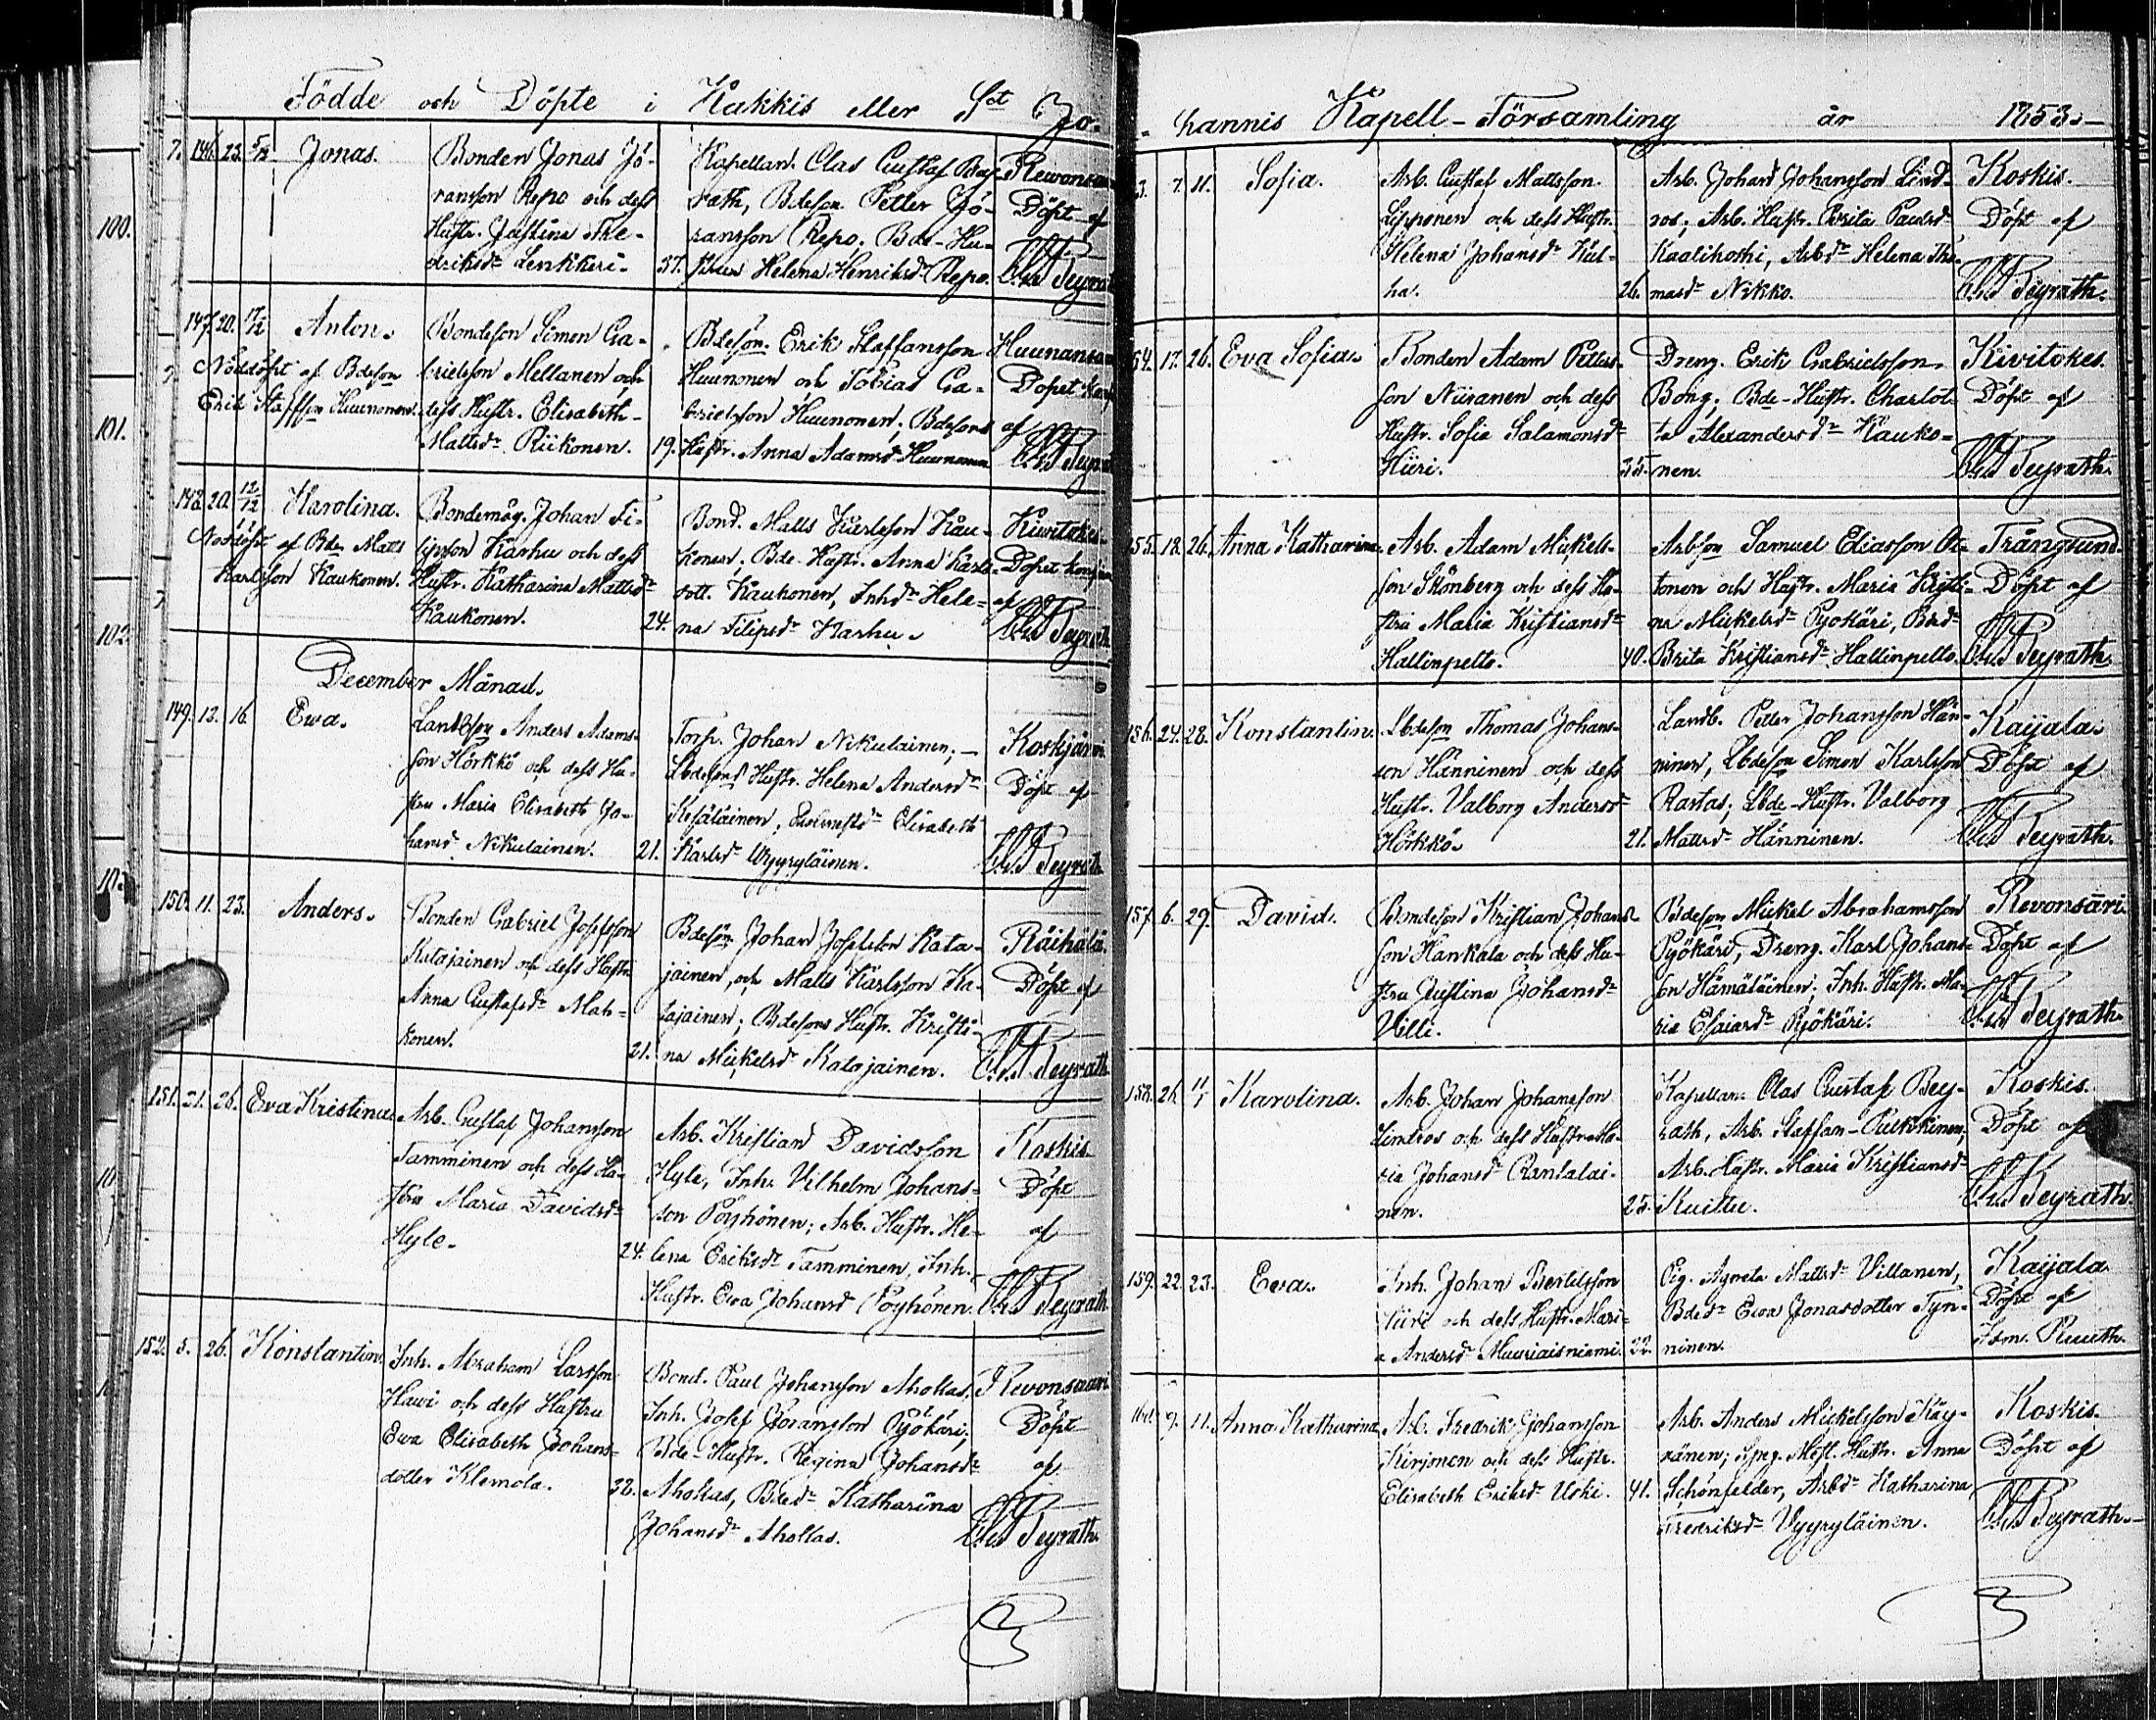 Födde och Döpte i Kakkis eller S:t Jo-
146. 23. 5/12 Jonas.
Bonden Jonas Jö-
ransson Repo och dess
Hustr. Justina Fre-
driksdr Lenkkeri. 37.
Kapellan. Clas Gustaf Bey-
rath, Bdeson Petter Jö-
ransson Repo; Bde-Hu-
strun Helena Henriksdr Repo.
Döpt af
147. 20. Anton.
Nöddöpt af Bdeson
Erik Staffsson Huunonen.
Bondeson Simon Ga-
brielsson Mellanen och
dess Hustr. Elisabeth
Mattsdr Riikonen. 19.
Bdeson. Erik Staffansson
Huunonen och Tobias Ga-
brielsson Huunonen; Bdesons
Hustr. Anna Adamsdr Huunonen
af
148. 20. 12/12 Karolina.
Nöddöpt af Bde Matts
Karlsson Kaukonen.
Bondemåg. Johan Fi-
lipsson Karhu och dess
Hustr. Katharina Mattsdr
Kaukonen. 24.
Bond. Matts Karlsson Kau-
konen. Bde. Hustr. Anna Karls-
dott. Kaukonen, Inhdr Hele-
na Filipsdr Karhu.
Kiwitokes
af
December Månad.
149. 13. 16. Ewa.
Landbson Anders Adams-
son Hörkkö och dess Hu-
stru Maria Elisabeth Jo-
hansd. Nikulainen. 21.
Torp. Johan Nikulainen;
Lbdesons Hustr. Helena Andersdr
Kesäläinen, Elisabeth
Karlsdr Wyyryläinen.
Koskijärvi
Döpt af
150. 11. 23. Anders.
Bonden Gabriel Josefsson
Katajainen och dess Hustru
Anna Gustafsdr Mah-
konen. 21.
Bdeson Johan Josefsson Kata-
jainen, och Matts Karlsson Ka-
tajainen; Bdesons Hustr. Kristi-
na Mickelsdr Katajainen.
Räihälä.
Döpt af
C.G. Beyrath
151. 21. 26. Eva Kristina.
Arb. Gustaf Johansson
Tamminen och dess Hu-
stru Maria Davidsdr
Hyle. 24.
Arb. Kristian Davidsson
Hyle, Inh. Vilhelm Johans-
son Pöyhönen; Arb. Hustr. He-
lena Eriksdr Tamminen, Inh.
Hustr. Ewa Johansd Pöyhönen.
Koskis
Döpt
af
C.G. Beyrath
152. 5. 26. Konstantin.
Inh. Abraham Larsson
Hawi och dess Hustru
Ewa Elisabeth Johans-
dotter Klemola. 32.
Bond. Paul Johansson Ahokas,
Inh. Josef Göransson Pyökäri;
Bde-Hustr. Regina Johansdr
Ahokas, Bdedr Katharina
Johansdr Ahokas.
Revonsaari
Döpt
af
C.G. Beyrath
hannis Kapell-Församling år 1853.
7. 11. Sofia.
Arb. Gustaf Mattsson
Lipponen och dess Hustr.
Helena Johansdr Kul-
ha. 26.
Arb. Johan Johansson Lind-
ros; Arb. Hustr. Brita Paulsd
Kaalikoski, Arbdr Helena Tho-
masdr Nikko.
Koskis.
Döpt af
C.G. Beyrath.
54. 17. 26. Eva Sofia.
Bonden Adam Petters-
son Niiranen och dess
Hustr. Sofia Salamonsdr
Hiiri. 35.
Dreng. Erik Gabrielsson
Bong; Bde-Hustr. Charlot-
ta Alexandersdr Kauko-
nen.
Kivitokes.
Döpt af
C.G. Beyrath.
55. 18. 26. Anna Katharina.
Arb. Adam Mickels-
son Skönberg och dess Hu-
stru Maria Kristiansdr
Hallinpelto. 40.
Arbson Samuel Eliasson Ot-
tonen och Hustr. Maria Kristi-
na Mickelsdr Pyökäri, Bdedr
Brita Kristiansdr Hallinpelto.
Trångsund.
Döpt af
C.G. Beyrath.
156. 24. 28. Konstantin.
Lbdeson Thomas Johans-
son Hänninen och dess
Hustr. Valborg Andersdr
Hörkkö. 21.
Landb. Petter Johansson Hän-
ninen, Lbdeson Simon Karlsson
Rastas; Lbde-Hustr. Valborg
Mattsdr Hänninen.
Kaijala.
Döpt af
C.G. Beyrath.
157. 6. 29. David.
Bondeson Kristian Johans-
son Hankala och dess Hu-
stru Justina Johansdr
Villi.
Bdeson Mickel Abrahamsson
Pyökäri, Dreng. Karl Johans-
son Hämäläinen; Inh. Hustr. Ma-
ria Esaiasdr Pyökäri.
Revonsaari.
Döpt af
C.G. Beyrath.
158. 26. 11/1 Karolina.
Arb. Johan Johansson
Limtros och dess Hustru Ma-
ria Johansdr Rantalai-
nen. 25.
Kapellan. Clas Gustaf Bey-
rath, Arb. Staffan Pulkkinen;
Arb. Hustr. Maria Kristiansdr
Kuittu.
Koskis.
Döpt af
C.G. Beyrath.
159. 22. 23. Eva.
Inh. Johan Bertilsson
Tiiri och dess Hustr. Mari-
a Andersdr Muuriaisniemi. 22.
Pig. Agneta Mattsdr Villanen,
Bdedr Ewa Jonasdotter Tyn-
ninen.
Kaijala
Döpt af
Ism. Ruuth.
160. 9. 11. Anna Katharina
Arb. Fredrik Johansson
Kirjonen och dess Hustr.
Elisabeth Eriksdr Uski. 41.
Arb. Anders Mickelsson Käy-
ränen; Hustr. Anna
Schönfelder, Arbdr Katharina
Fredriksdr Vyyryläinen.
Koskis.
Döpt af
C.G. Beyrath.
100.
101.
102.